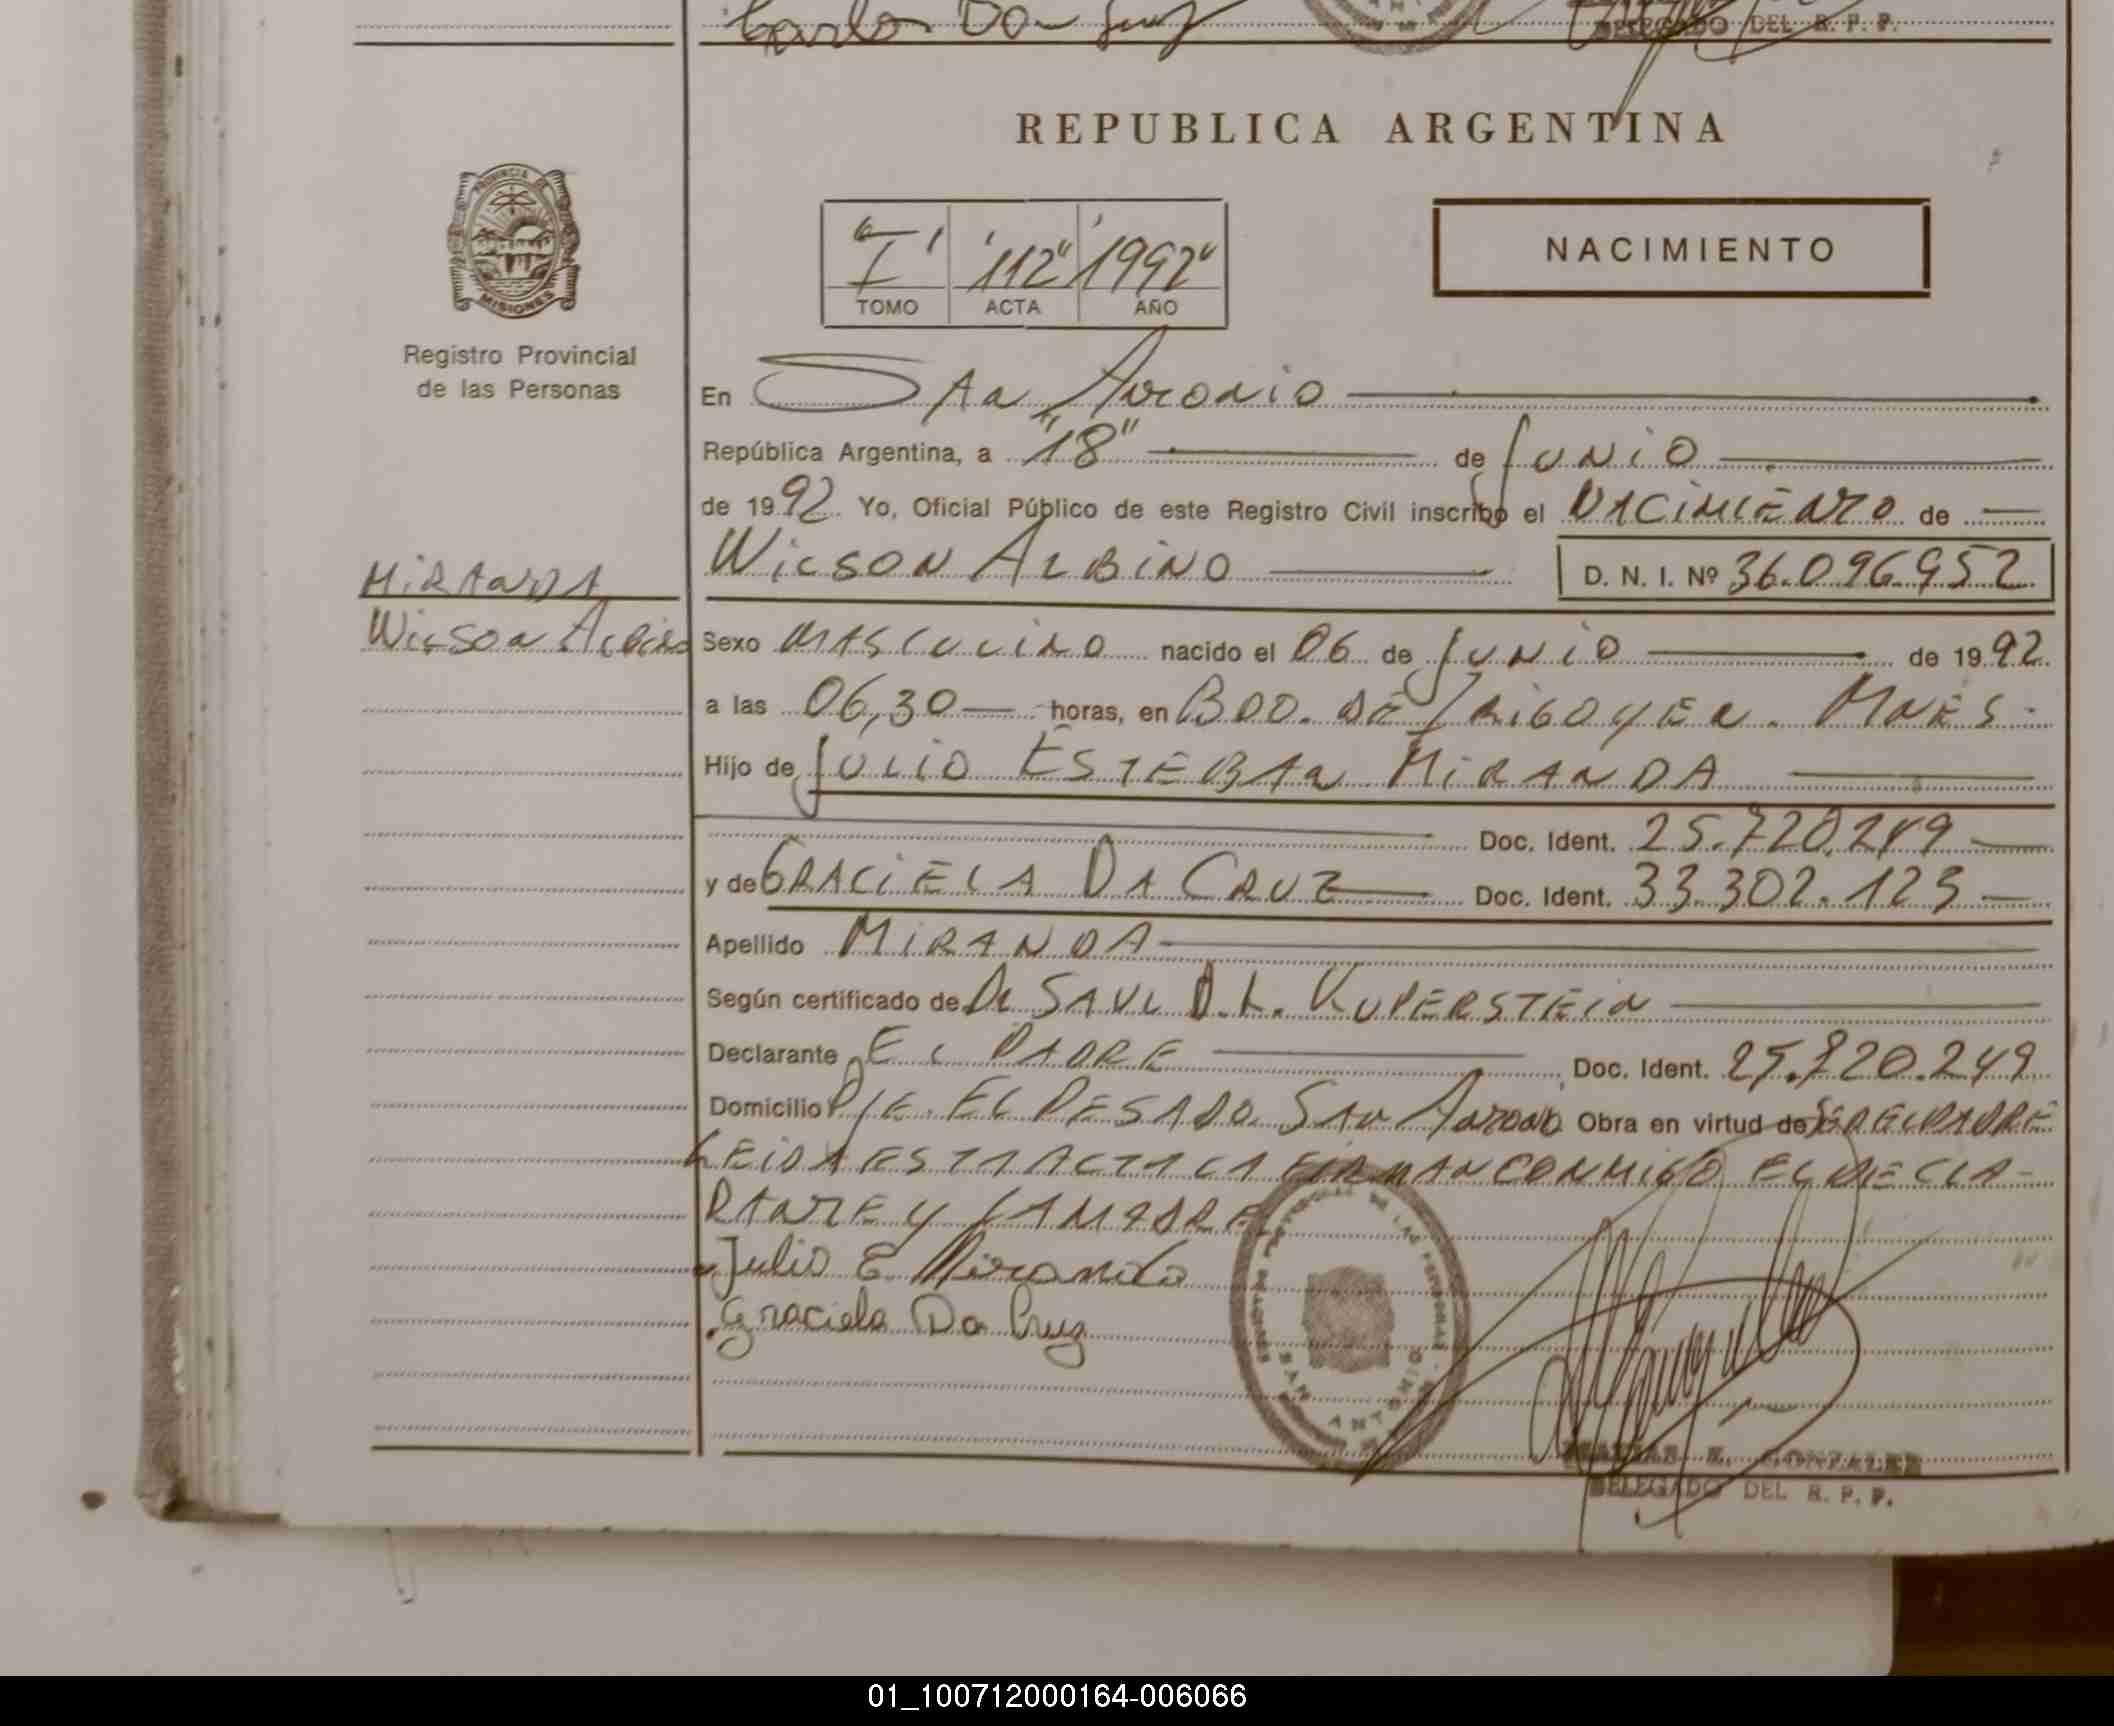 Carlos Da
DELEGADO DEL R. P. P.
REPUBLICA ARGENTINA
PROVINCIA DE
MISIONES
Registro Provincial
de las Personas
"I" "112" "1992"
TOMO ACTA AÑO
NACIMIENTO
En San Antonio
República Argentina, a "18" de Junio
de 1992. Yo, Oficial Público de este Registro Civil inscribo el NACIMIENTO de
WILSON ALBINO D. N. I. Nº 36.096.952
MIRANDA
Wilson Albino
Sexo MASCULINO nacido el 06 de JUNIO de 1992.
a las 06,30 horas, en BDO. DE IRIGOYEN. MNES.
Hijo de JULIO ESTEBAN MIRANDA
Doc. Ident. 25.720.249
y de GRACIELA DA CRUZ Doc. Ident. 33.302.123
Apellido MIRANDA
Según certificado de Dr SAUL D.L. KUPERSTEIN
Declarante EL PADRE Doc. Ident. 25.720.249
Domicilio PJE. EL PESADO. SAN ANTONIO Obra en virtud de SER EL PADRE
LEIDA ESTA ACTA LA FIRMAN CONMIGO EL DECLA-
RANTE Y LA MADRE
Julio E Miranda
Graciela Da Cruz
DE LAS PERSONAS
SAN ANTONIO
GONZALEZ
DELEGADO DEL R. P. P.
01_100712000164-006066